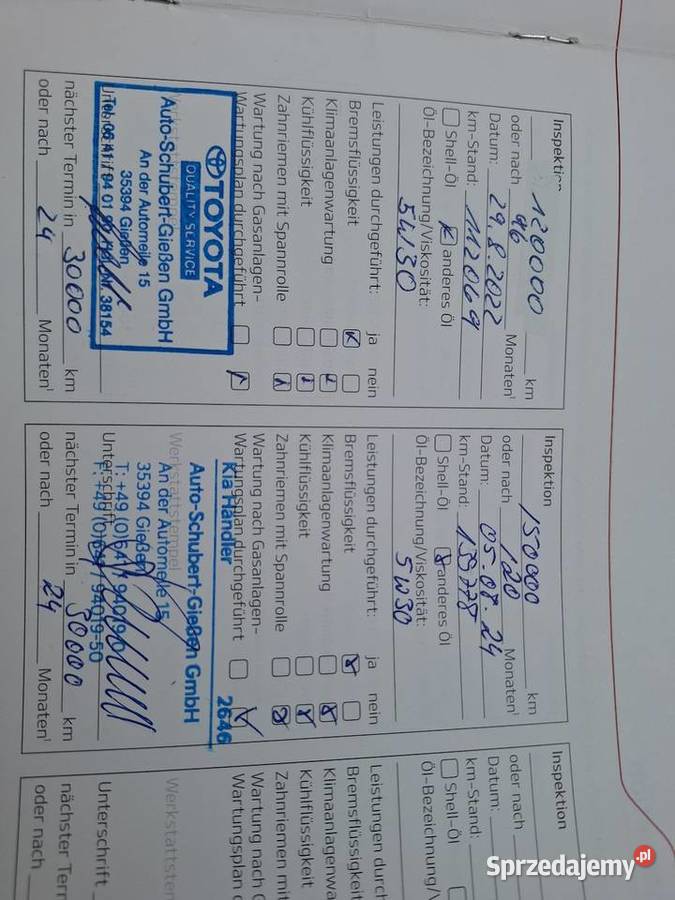 Inspektion
120000 km
oder nach 96 Monaten¹
Datum: 29.8.2022
km-Stand: 112069
Shell-Öl anderes Öl
Öl-Bezeichnung/Viskosität:
5W30
Leistungen durchgeführt: ja nein
Bremsflüssigkeit
Klimaanlagenwartung
Kühlflüssigkeit
Zahnriemen mit Spannrolle
Wartung nach Gasanlagen-
Wartungsplan durchgeführt
TOYOTA
QUALITY SERVICE
Auto-Schubert-Gießen GmbH
An der Automeile 15
35394 Gießen
38154
nächster Termin in 30000 km
oder nach 24 Monaten¹
Inspektion
150000 km
oder nach 120 Monaten¹
Datum: 05.08.24
km-Stand: 139778
Shell-Öl anderes Öl
Öl-Bezeichnung/Viskosität:
5W30
Leistungen durchgeführt: ja nein
Bremsflüssigkeit
Klimaanlagenwartung
Kühlflüssigkeit
Zahnriemen mit Spannrolle
Wartung nach Gasanlagen-
Wartungsplan durchgeführt
Kia Händler 2646
Werkstattstempel
Auto-Schubert-Gießen GmbH
An der Automeile 15
35394 Gießen
Unterschrift
nächster Termin in 30000 km
oder nach 24 Monaten¹
Inspektion
oder nach
Datum:
km-Stand:
Shell-Öl
Öl-Bezeichnung/V
Leistungen durch
Bremsflüssigkeit
Klimaanlagenwa
Kühlflüssigkeit
Zahnriemen mit
Wartung nach G
Wartungsplan d
Werkstattsten
Unterschrift
nächster Terr
oder nach
Sprzedajemy.pl